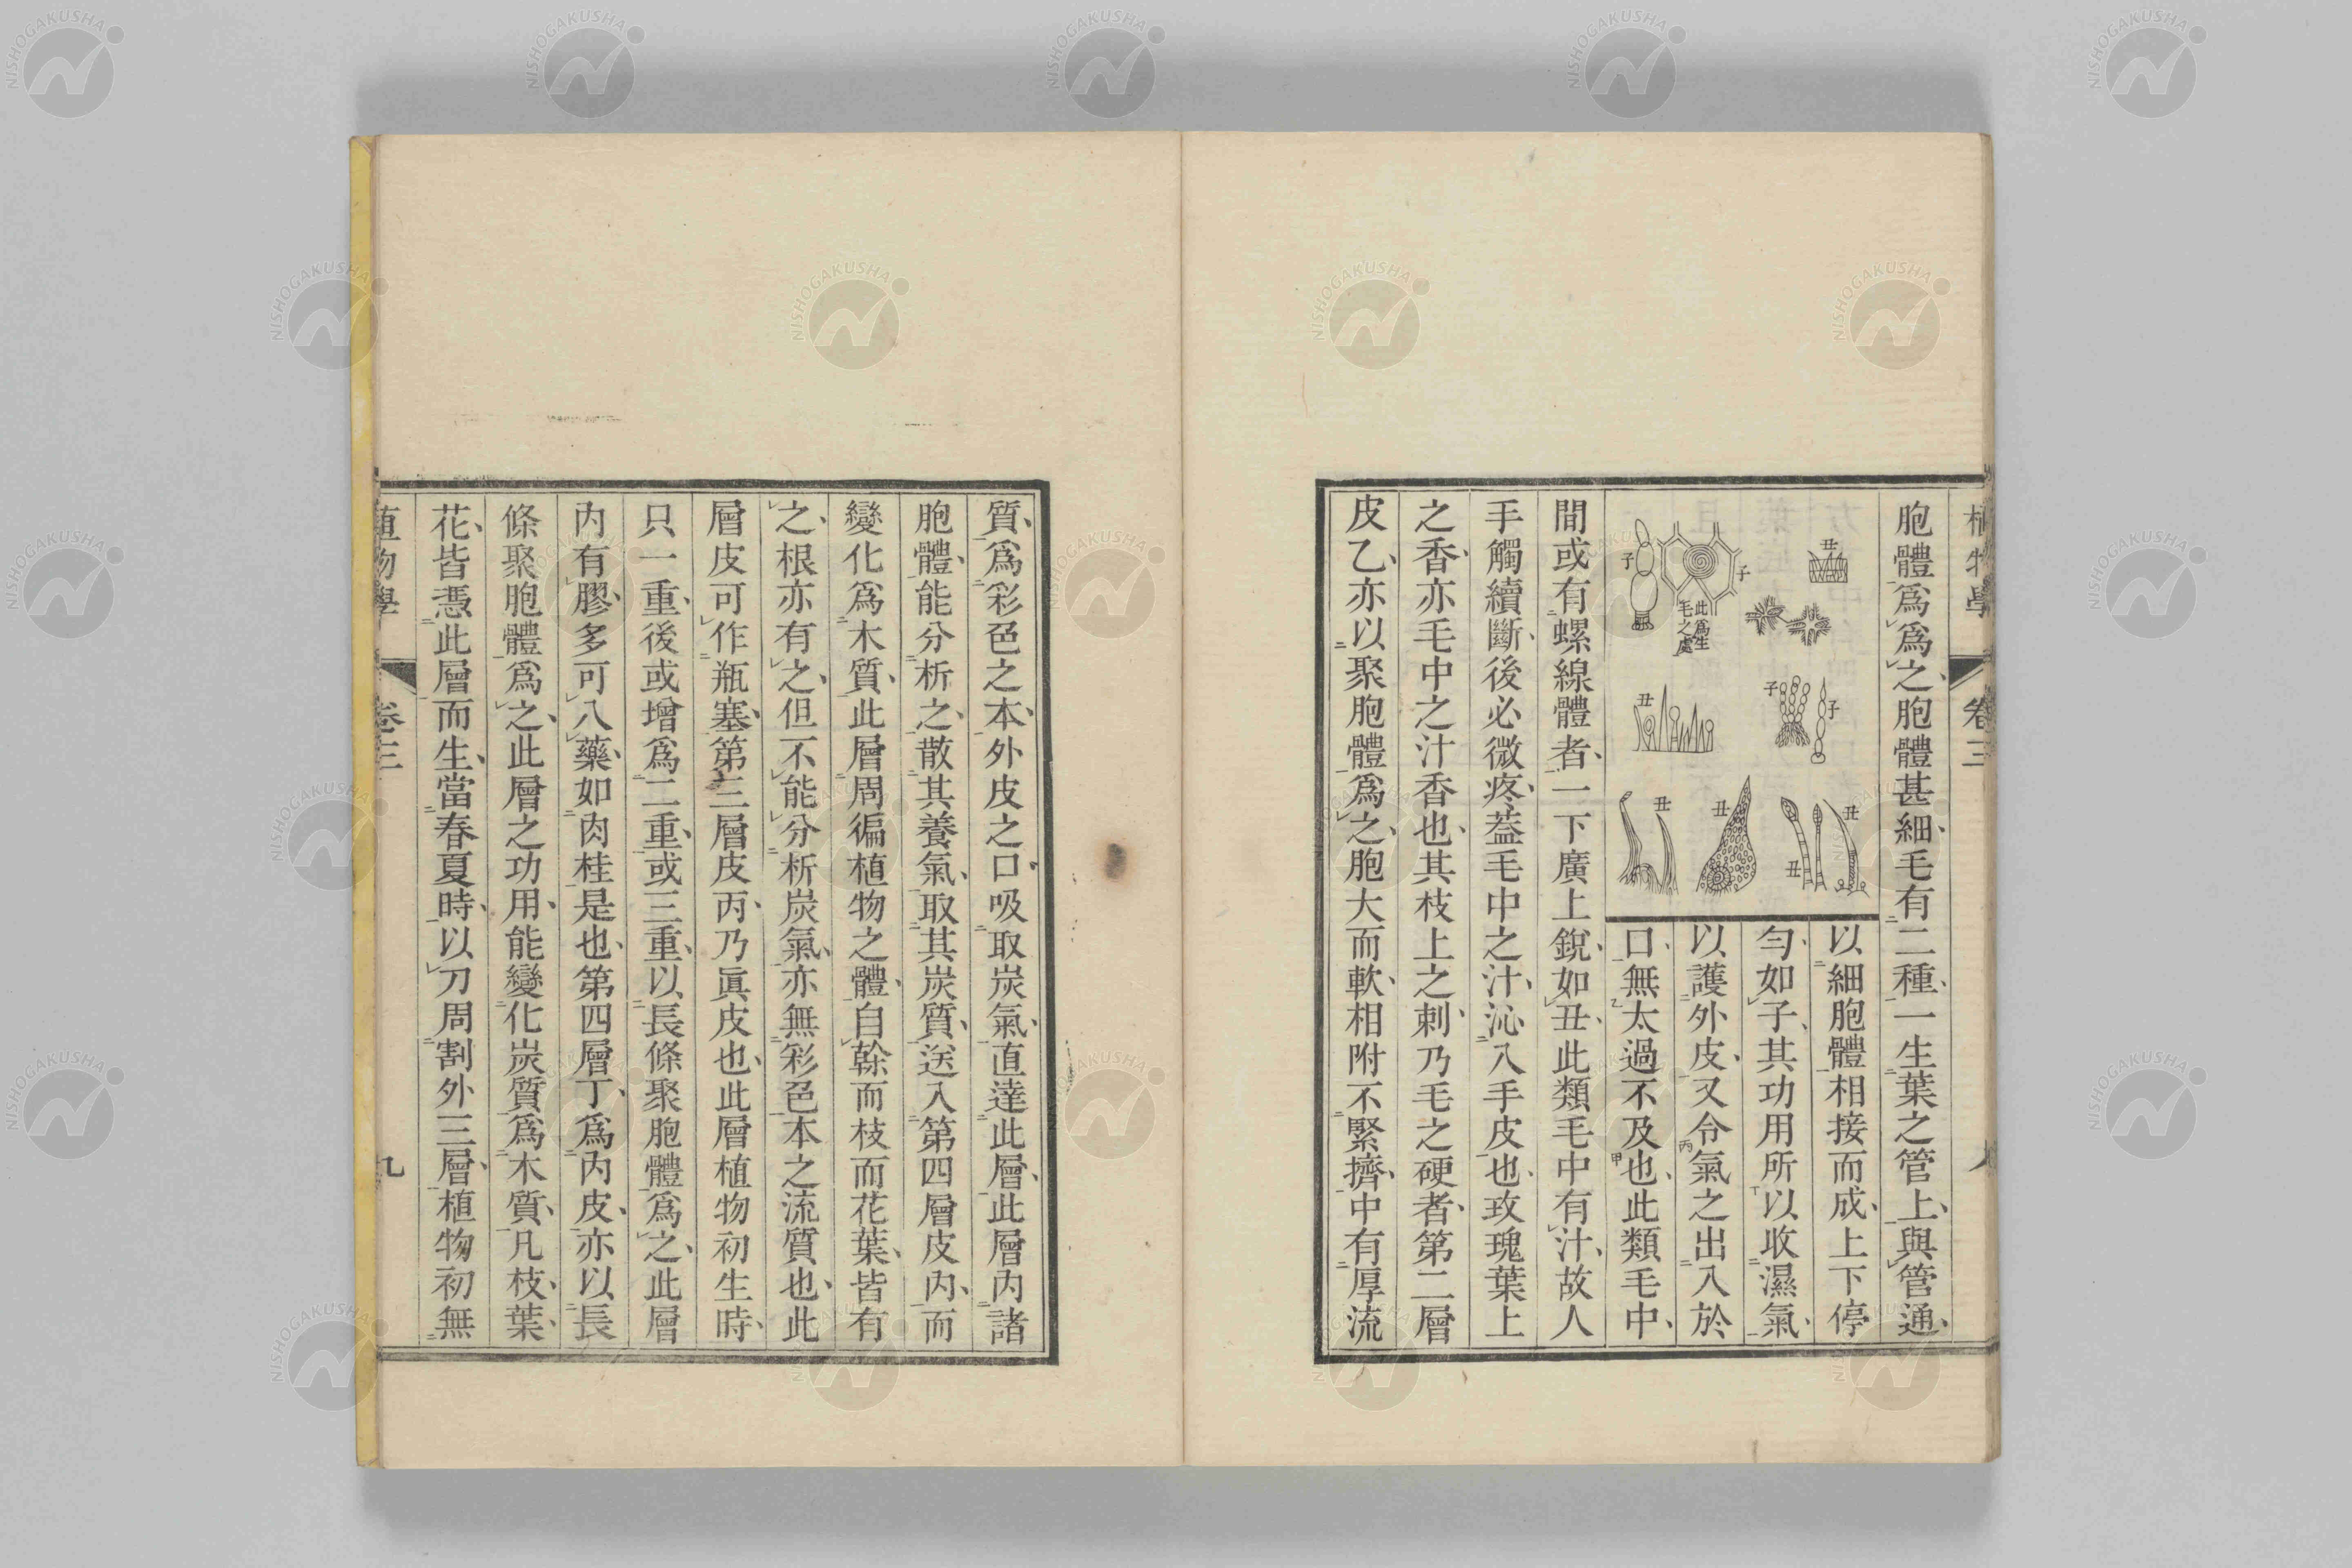 植物學 卷三
胞體爲爲之胞體甚細毛有二種一生葉之管上與管通
以細胞體相接而成上下停
勻如子其功用所以收濕氣
以護外皮又令氣之出入於
口無太過不及也此類毛中
丑
子
子
此爲生
毛之處
丑
子
子
丑
丑
丑
丑
間或有螺線體者一下廣上銳如丑此類毛中有汁故人
手觸續斷後必微疼葢毛中之汁沁入手皮也玫瑰葉上
之香亦毛中之汁香也其枝上之刺乃毛之硬者第二層
皮乙亦以聚胞體爲之胞大而軟相附不緊擠中有厚流
質爲彩色之本外皮之口吸取炭氣直達此層此層內諸
胞體能分析之散其養氣取其炭質送入第四層皮內而
變化爲木質此層周徧植物之體自榦而枝而花葉皆有
之根亦有之但不能分析炭氣亦無彩色本之流質也此
層皮可作瓶塞第三層皮丙乃眞皮也此層植物初生時
只一重後或增爲二重或三重以長條聚胞體爲之此層
內有膠多可入藥如肉桂是也第四層丁爲內皮亦以長
條聚胞體爲之此層之功用能變化炭質爲木質凡枝葉
花皆憑此層而生當春夏時以刀周割外三層植物初無
植物學 卷三 九
NISHOGAKUSHA